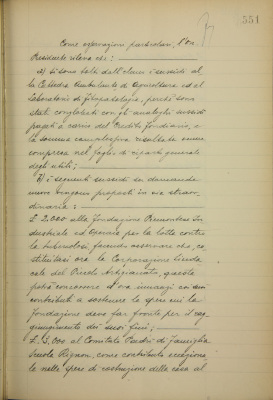 551
Come osservazioni particolari, l'On.
Presidente rileva che:
a) si sono tolti dall'elenco i sussidi al
la Cattedra Ambulante di Agricoltura ed al
Laboratorio di Fitopatologia, perché sono
stati conglobati con gli analoghi sussidi
pagati a carico del Credito fondiario, e
la somma complessiva risultante venne
compresa nel foglio di riparto generale
degli utili;
b) i seguenti sussidi in domanda
invero vengono proposti in via straor-
dinaria:
£ 2.000 alla Fondazione Piemontese In
dustriale ed Operaia per la lotta contro
la tubercolosi facendo osservare che, co
stituitasi ora la Corporazione
del Piccolo Artigianato, questa
potrà concorrere d'ora innanzi coi suoi
contributi a sostenere le spese cui la
fondazione deve far fronte per il rag
giungimento dei suoi fini;
£ 5.000 al Comitato Padri di famiglia
Scuola Rignon, come contributo eccezional
e nelle spese di costruzione della casa al